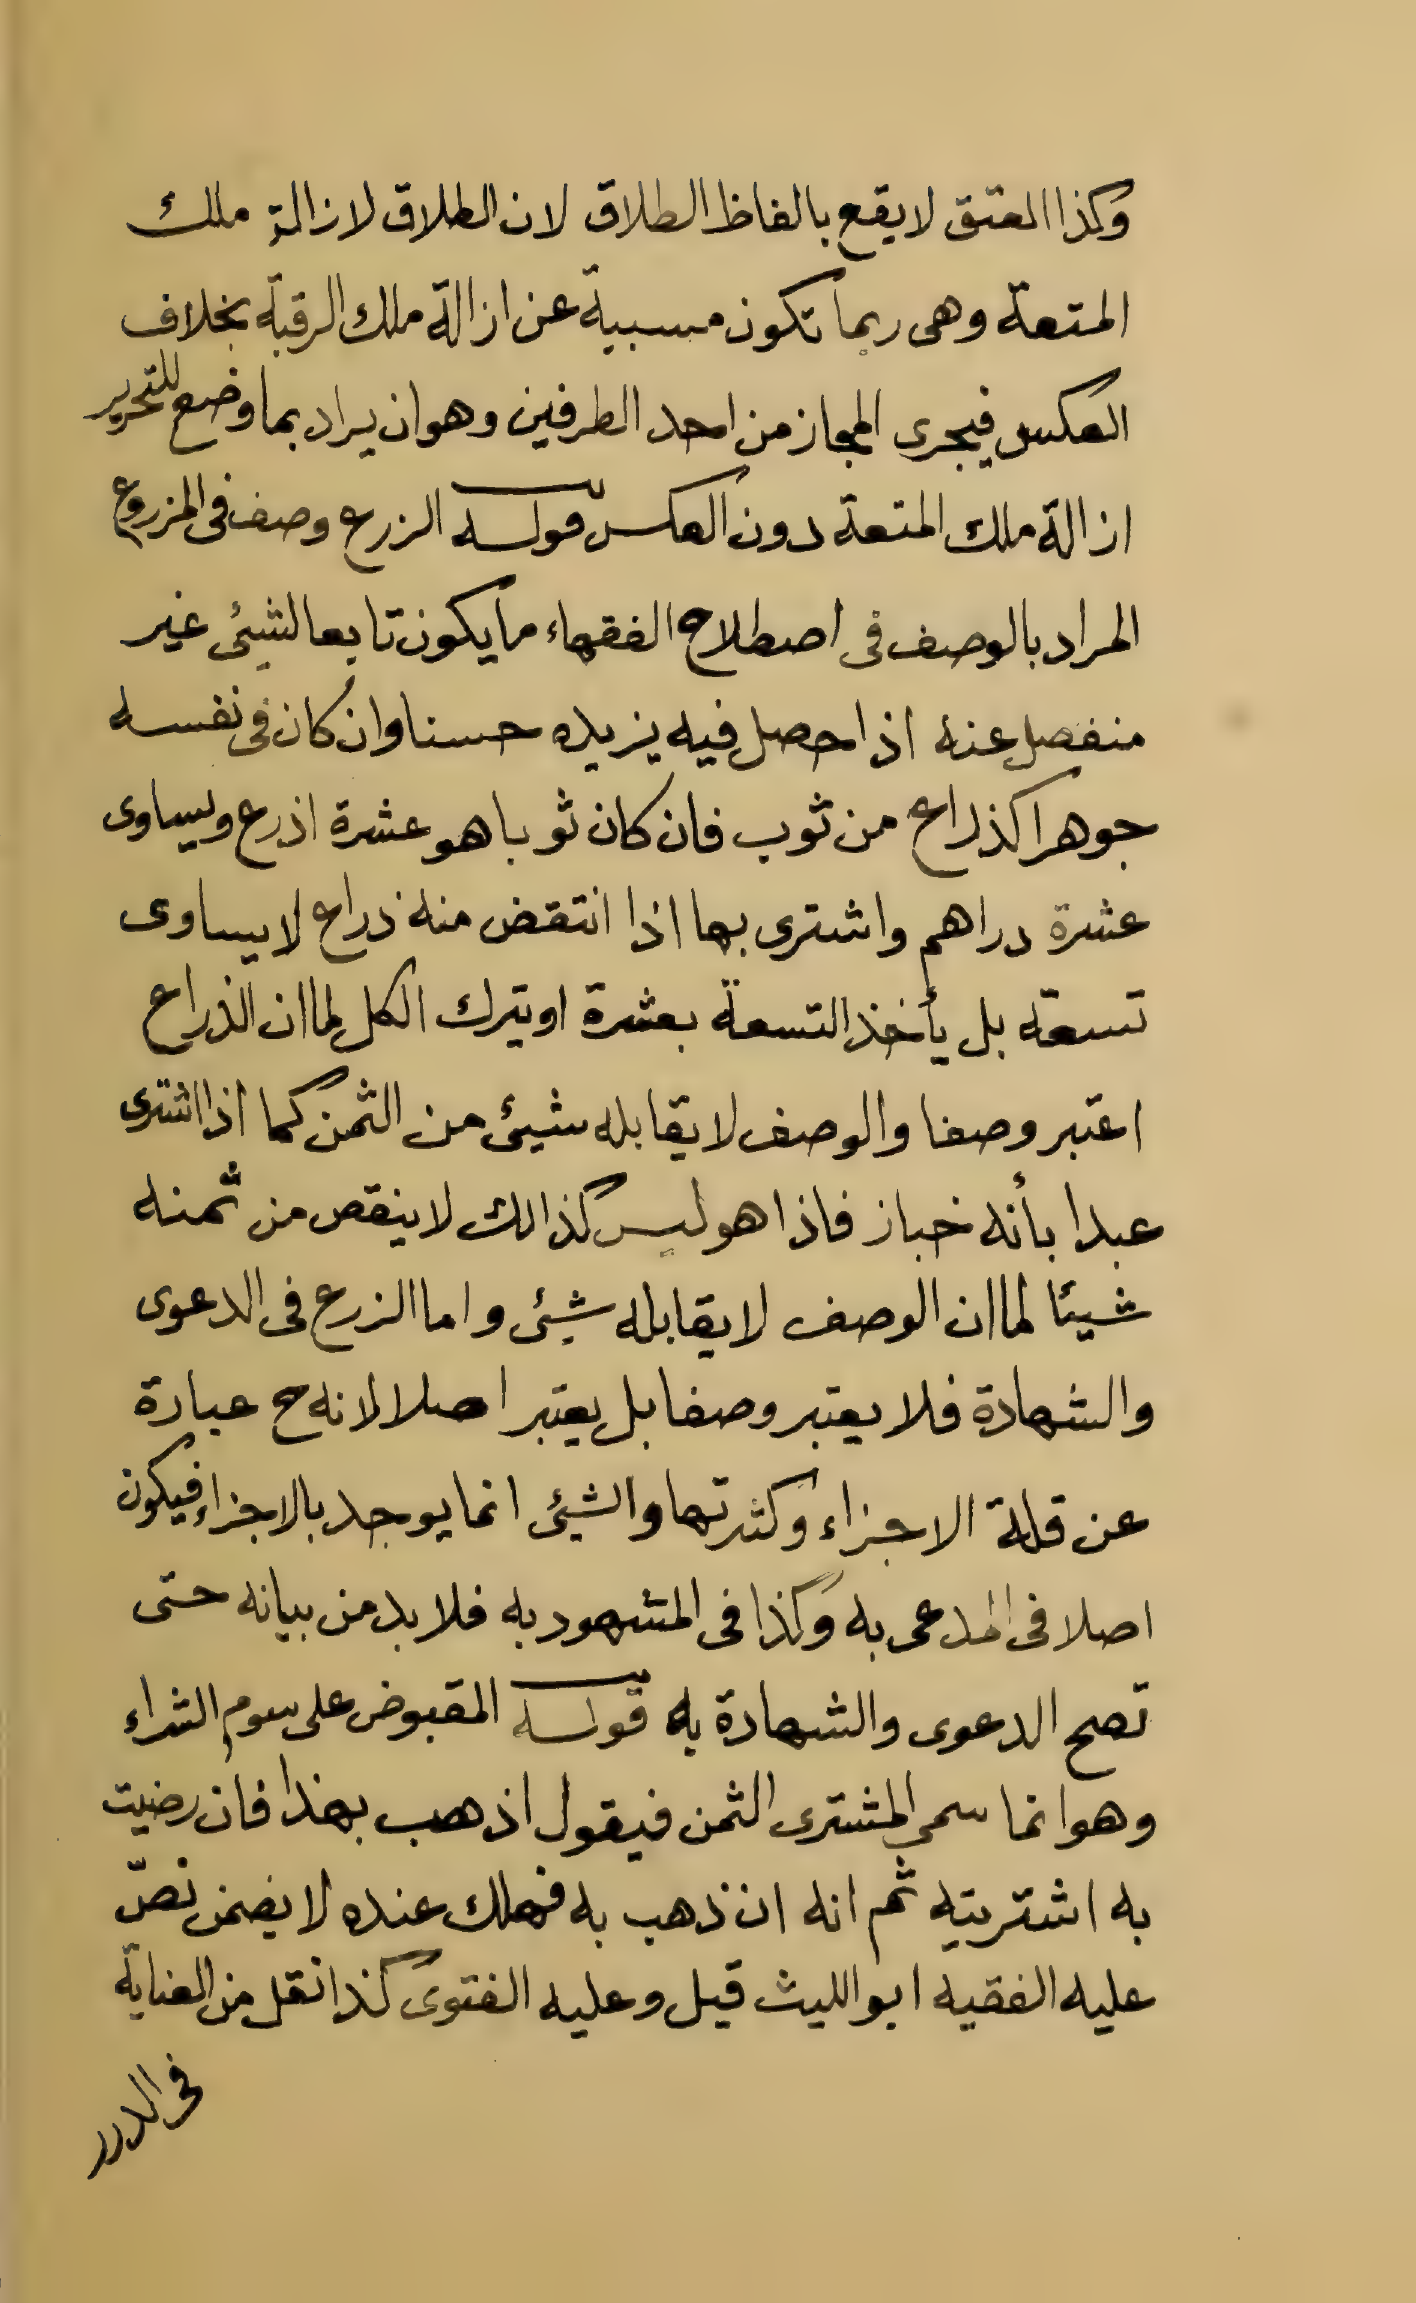 وكذا العتق لا يقع بالفاظ الطلاق لان الطلاق لازالة ملك
المتعة وهى ربما تكون مسببة عن ازالة ملك الرقبة بخلاف
العكس فيجرى المجاز من احد الطرفين وهو ان يراد بما وضع للتحرير
ازالة ملك المتعة دون العكس قوله الزرع وصف فى المزروع
المراد بالوصف فى اصطلاح الفقهاء ما يكون تابعا لشيئ غير
منفصل عنه اذا حصل فيه يزيده حسنا وان كان فى نفسه
جوهرا كذراع من ثوب فان كان ثوبا هو عشرة اذرع ويساوى
عشرة دراهم واشترى بها اذا انتقض منه ذراع لا يساوى
تسعة بل يأخذ التسعة بعشرة او يترك الكل لما ان الذراع
اعتبر وصفا والوصف لا يقابله شيئ من الثمن كما اذا اشترى
عبدا بأنه خباز فاذا هو ليس كذالك لا ينقص من ثمنه
شيئا لما ان الوصف لا يقابله شيئ واما الزرع فى الدعوى
والشهادة فلا يعتبر وصفا بل يعتبر اصلا لانه ح عبارة
عن قلة الاجزاء وكثرتها والشيئ انما يوجد بالاجزاء فيكون
اصلا فى المدعى به وكذا فى المشهود به فلا بد من بيانه حتى
تصح الدعوى والشهادة به قوله المقبوض على سوم الشراء
وهو انما سمى المشترى الثمن فيقول اذهب بهذا فان رضيت
به اشتريته ثم انه ان ذهب به فهلك عنده لا يضمن نصّ
عليه الفقيه ابو الليث قيل وعليه الفتوى كذا نقل من العناية
فى الدرر